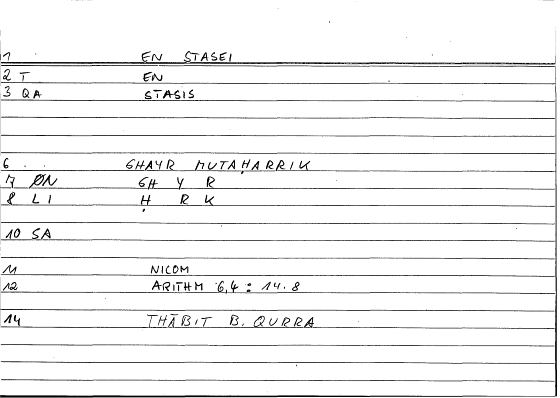 1 EN STASEI
2 T EN
3 QA STASIS
6 GHAYR MUTAḤARRIK
7 ØN GH Y R
8 LI Ḥ R K
10 SA
11 NICOM
12 ARITHM 6,4 : 14.8
14 THĀBIT B. QURRA